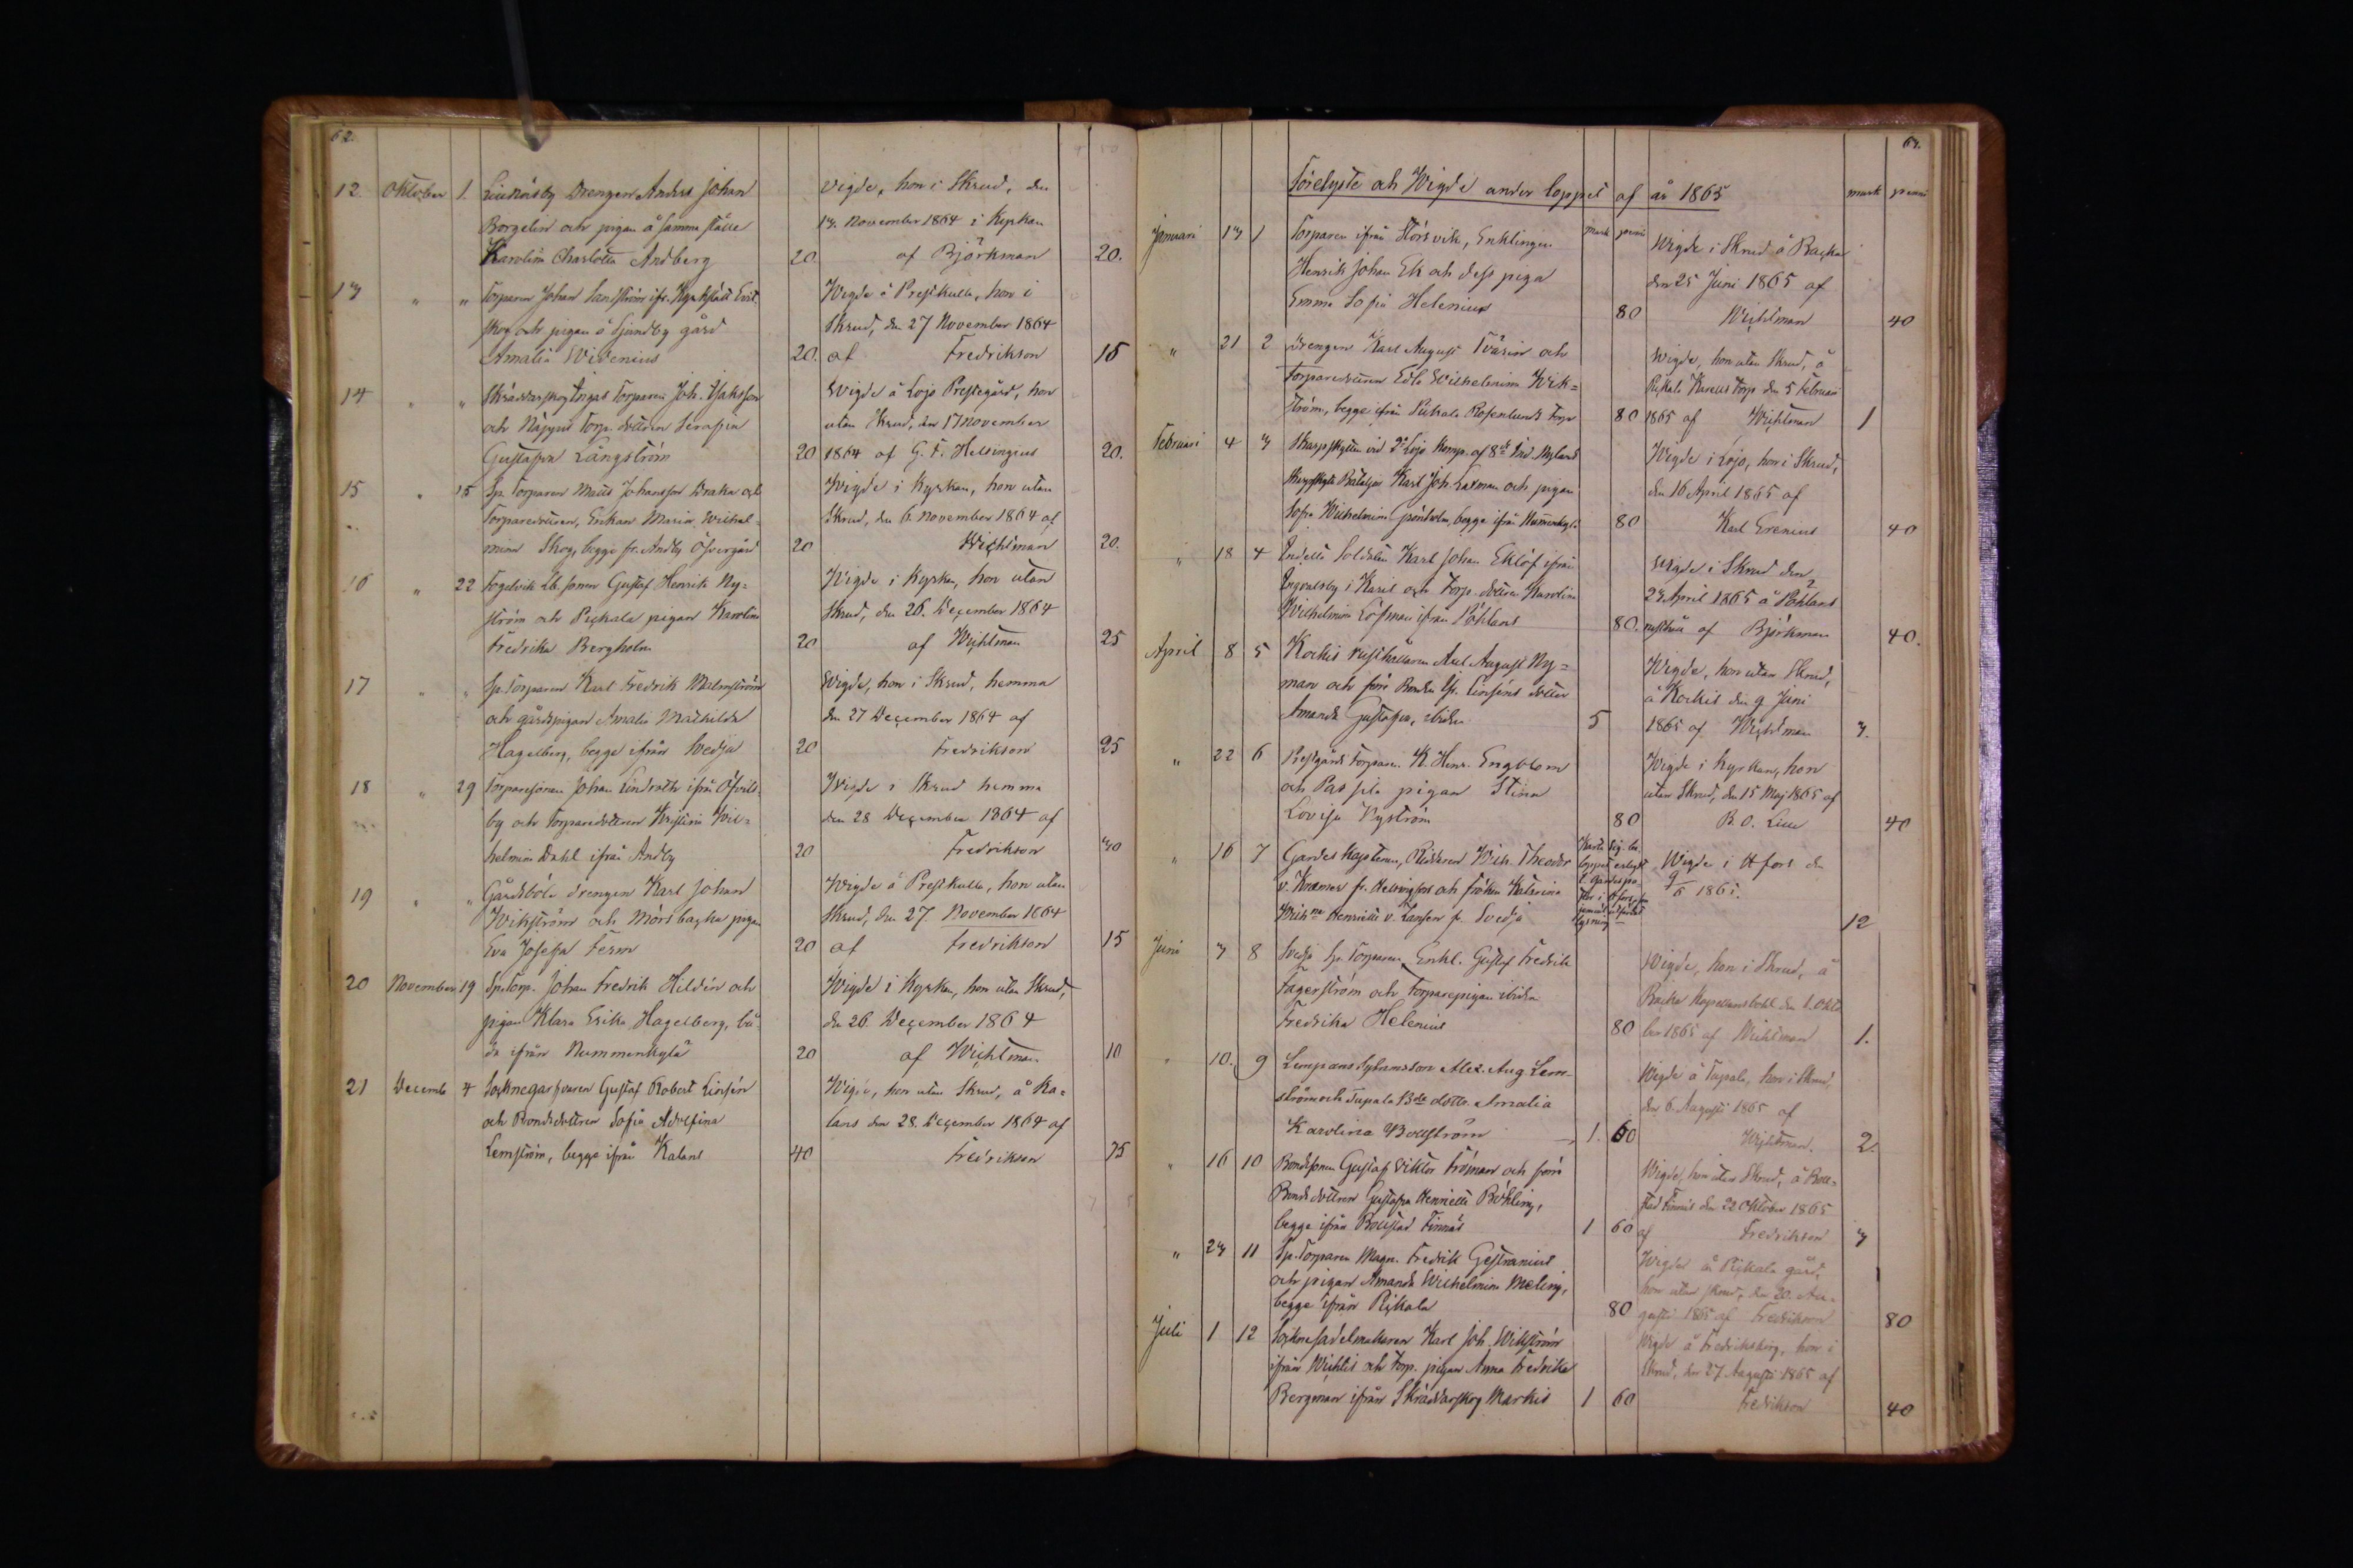 62.
12 Oktober 1. Drengen Anders Johan
Borgelin och pigan å samma ställe
Karolina Charlotta Andberg 20
vigde, hon i Skrud, den
13. November 1864 i Kyrkan
af Björkman 20.
13 " " Torparen Johan Sandström ifr. Kyrkslätt
skog och pigan å Sjundby gård
Amalia Widenius 20.
Wigde å Prestkulla, hon i
Skrud, den 27 November 1864
af Fredrikson 15
14 " " Skräddarskog Torparen Joh. Isaksson
och Torp. dottren Serafia
Gustafva Långström 20
Wigde å Lojo Prestegård, hon
utan Skrud, den 17 November
1864 af G. F. Helsingius 20.
15 " 15 Sp. Torparen Matts Johansson och
Torparedottren, Enkan Maria Wilhel-
mina Skog, begge fr. Andby Öfvergård 20
Wigde i Kyrkan, hon utan
Skrud, den 6. November 1864 af
Wichtman 20.
16 " 22 Fogelvik Lb. sonen Gustaf Henrik Ny=
ström och Pickala pigan Karolina
Fredrika Bergholm 20
Wigde i Kyrkan, hon utan
Skrud, den 26. December 1864
af Wichtman 25
17 " " Sp. Torparen Karl Fredrik Malmström
och gårdspigan Amalia Mathilda
Hagelberg, begge ifrån Svedja 20
Wigde, hon i Skrud, hemma
den 27 December 1864 af
Fredrikson 25
18 " 29 Torparesonen Johan Lindroth ifrån Öfvits-
by och Torparedottren Kristina Wil=
helmina Dahl ifrån Andby 20
Wigde i Skrud hemma
den 28 December 1864 af
Fredrikson 30
19 " " Gårdsböle drengen Karl Johan
Wikström och Mörsbacka pigan
Eva Josefa Ferm 20
Wigde å Prestkulla, hon utan
Skrud, den 27. November 1864
af Fredrikson 15
20 November 19 Sp. Torp. Johan Fredrik Hildén och
pigan Klara Erika Hagelberg, bå-
da ifrån Nummenkylä 20
Wigde i Kyrkan, hon utan Skrud,
den 26. December 1864
af Wichtman 10
21 Decemb 4 Socknegarfvaren Gustaf Robert Linsén
och Bondedottren Sofia Adolfina
Lemström, begge ifrån Kalans 40
Wigde, hon utan Skrud, å Ka-
lans den 28. December 1864 af
Fredrikson 75
63.
Förelyste och Wigde under loppet af år 1865 mark penni
Januari 13 1 Torparen ifrån Störsvik, Enklingen mark penni
Henrik Johan Ek och dess piga
Emma Sofia Helenius 80
Wigde i Skrud å Backa
den 25 Juni 1865 af
Wichtman 40
" 21 2 Drengen Karl August Tvärin och
Torparedottren Edla Wilhelmina Wik=
ström, begge ifrån Pickala Rosenlunds Torp 80
Wigde, hon utan Skrud, å
Pickala Torp den 5 Februari
1865 af Wichtman 1
Februari 4 3 Skarpskytten vid 2a Lojo Komp. af 8de Ind. Nylands
Skarpskytte Bataljon Karl Joh. Laxman och pigan
Sofia Wilhelmina Grönholm, begge ifrån Nummenkylä 80
Wigde i Lojo, hon i Skrud,
den 16 April 1865 af
Karl Grenius 40
" 18 4 Indelta Soldaten Karl Johan Eklöf ifrån
Ingvalsby i Karis och Torp. dottren Karolina
Wilhelmina Löfman ifrån Påhlans 80.
Wigde i Skrud den
23 April 1865 å Påhlans
rusthåll af Björkman 40.
April 8 5 Kockis rusthållaren Axel August Ny=
man och förre Bonden Linséns dotter
Amanda Gustafva, ibidem 5
Wigde, hon utan Skrud,
å Kockis den 9 Juni
1865 af Wichtman 3.
" 22 6 Prestgårds Torparen K. Henr. Engblom
och Passila pigan Stina
Lovisa Nyström 80
Wigde i Kyrkan, hon
utan Skrud, den 15 Maj 1865 af
B. O. Lille 40
" 16 7 Gardes Kaptenen, Riddaren Wilh. Theodor
v. Kraemer fr. Helsingfors och Fröken Katarina
Wilhna Henrietta v. Jansen fr. Svedja
Wigde i H:fors den
9/6 1865.
12
Juni 3 8 Svedja Sp. Torparen, Enkl. Gustaf Fredrik
Fagerström och Torparepigan ibidem
Fredrika Helenius 80
Wigde, hon i Skrud, å
Backa Kapellansbohl den 1. Okto
ber 1865 af Wichtman 1.
" 10. 9 Lempans Sytansson Alex. Aug. Lem-
ström och Tupala Bde dottr. Amalia
Karolina Bollström 1. 60
Wigde å Tupala, hon i Skrud,
den 6. Augusti 1865 af
Wichtman. 2.
" 16 10 Bondesonen Gustaf Viktor Fröman och förre
Bondedottren Gustafva Henrietta Böhling,
begge ifrån Bollstad Finnäs 1 60
Wigde, hon utan Skrud, å Boll-
stad Finnäs den 22 Oktober 1865
af Fredrikson 3
" 23 11 Sp. Torparen Magn. Fredrik Gestranius
och pigan Amanda Wilhelmina Meling,
begge ifrån Pickala 80
Wigde å Pickala gård,
hon utan skrud, den 20. Au-
gusti 1865 af Fredrikson 80
Juli 1 12 Sockne Sadelmakaren Karl Joh. Wikström
ifrån Wichtis och Torp. pigan Anna Fredrika
Bergman ifrån Skräddarskog Markis 1 60
Wigde å Fredriksberg, hon i
Skrud, den 27 Augusti 1865 af
Fredrikson 40